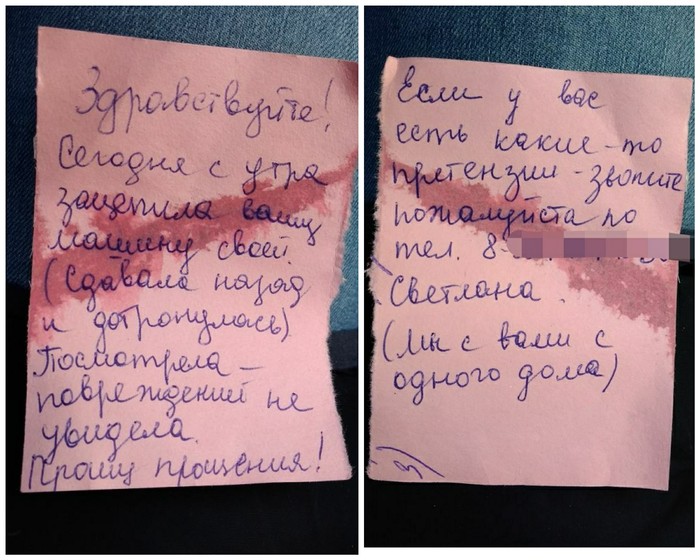 Здравствуйте!
Сегодня с утра
зацепила вашу
машину своей.
(Сдавала назад
и дотронулась)
Посмотрела –
повреждений не
увидела.
Прошу прощения!
Если у вас
есть какие-то
претензии - звоните
пожалуйста по
тел. 8
Светлана.
(Мы с вами с
одного дома)